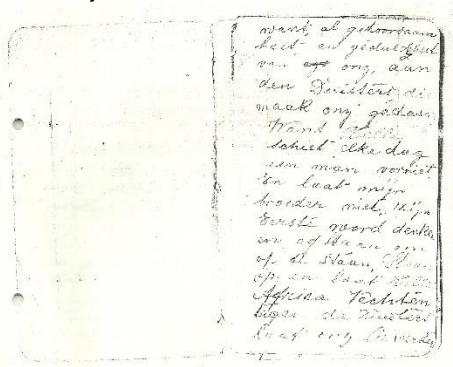 want, al gehoorsaam
heit en geduldheit
van ons, aan
den Duisters die
maak ons gedaan
Want
schiet elke dag
een man vorniet
En laat mijn
broeder niet, mijn
Eerste woord denken
en of staan om
op te staan,
op en laat
Africa Vechten
tegen de Duisters
laat ons